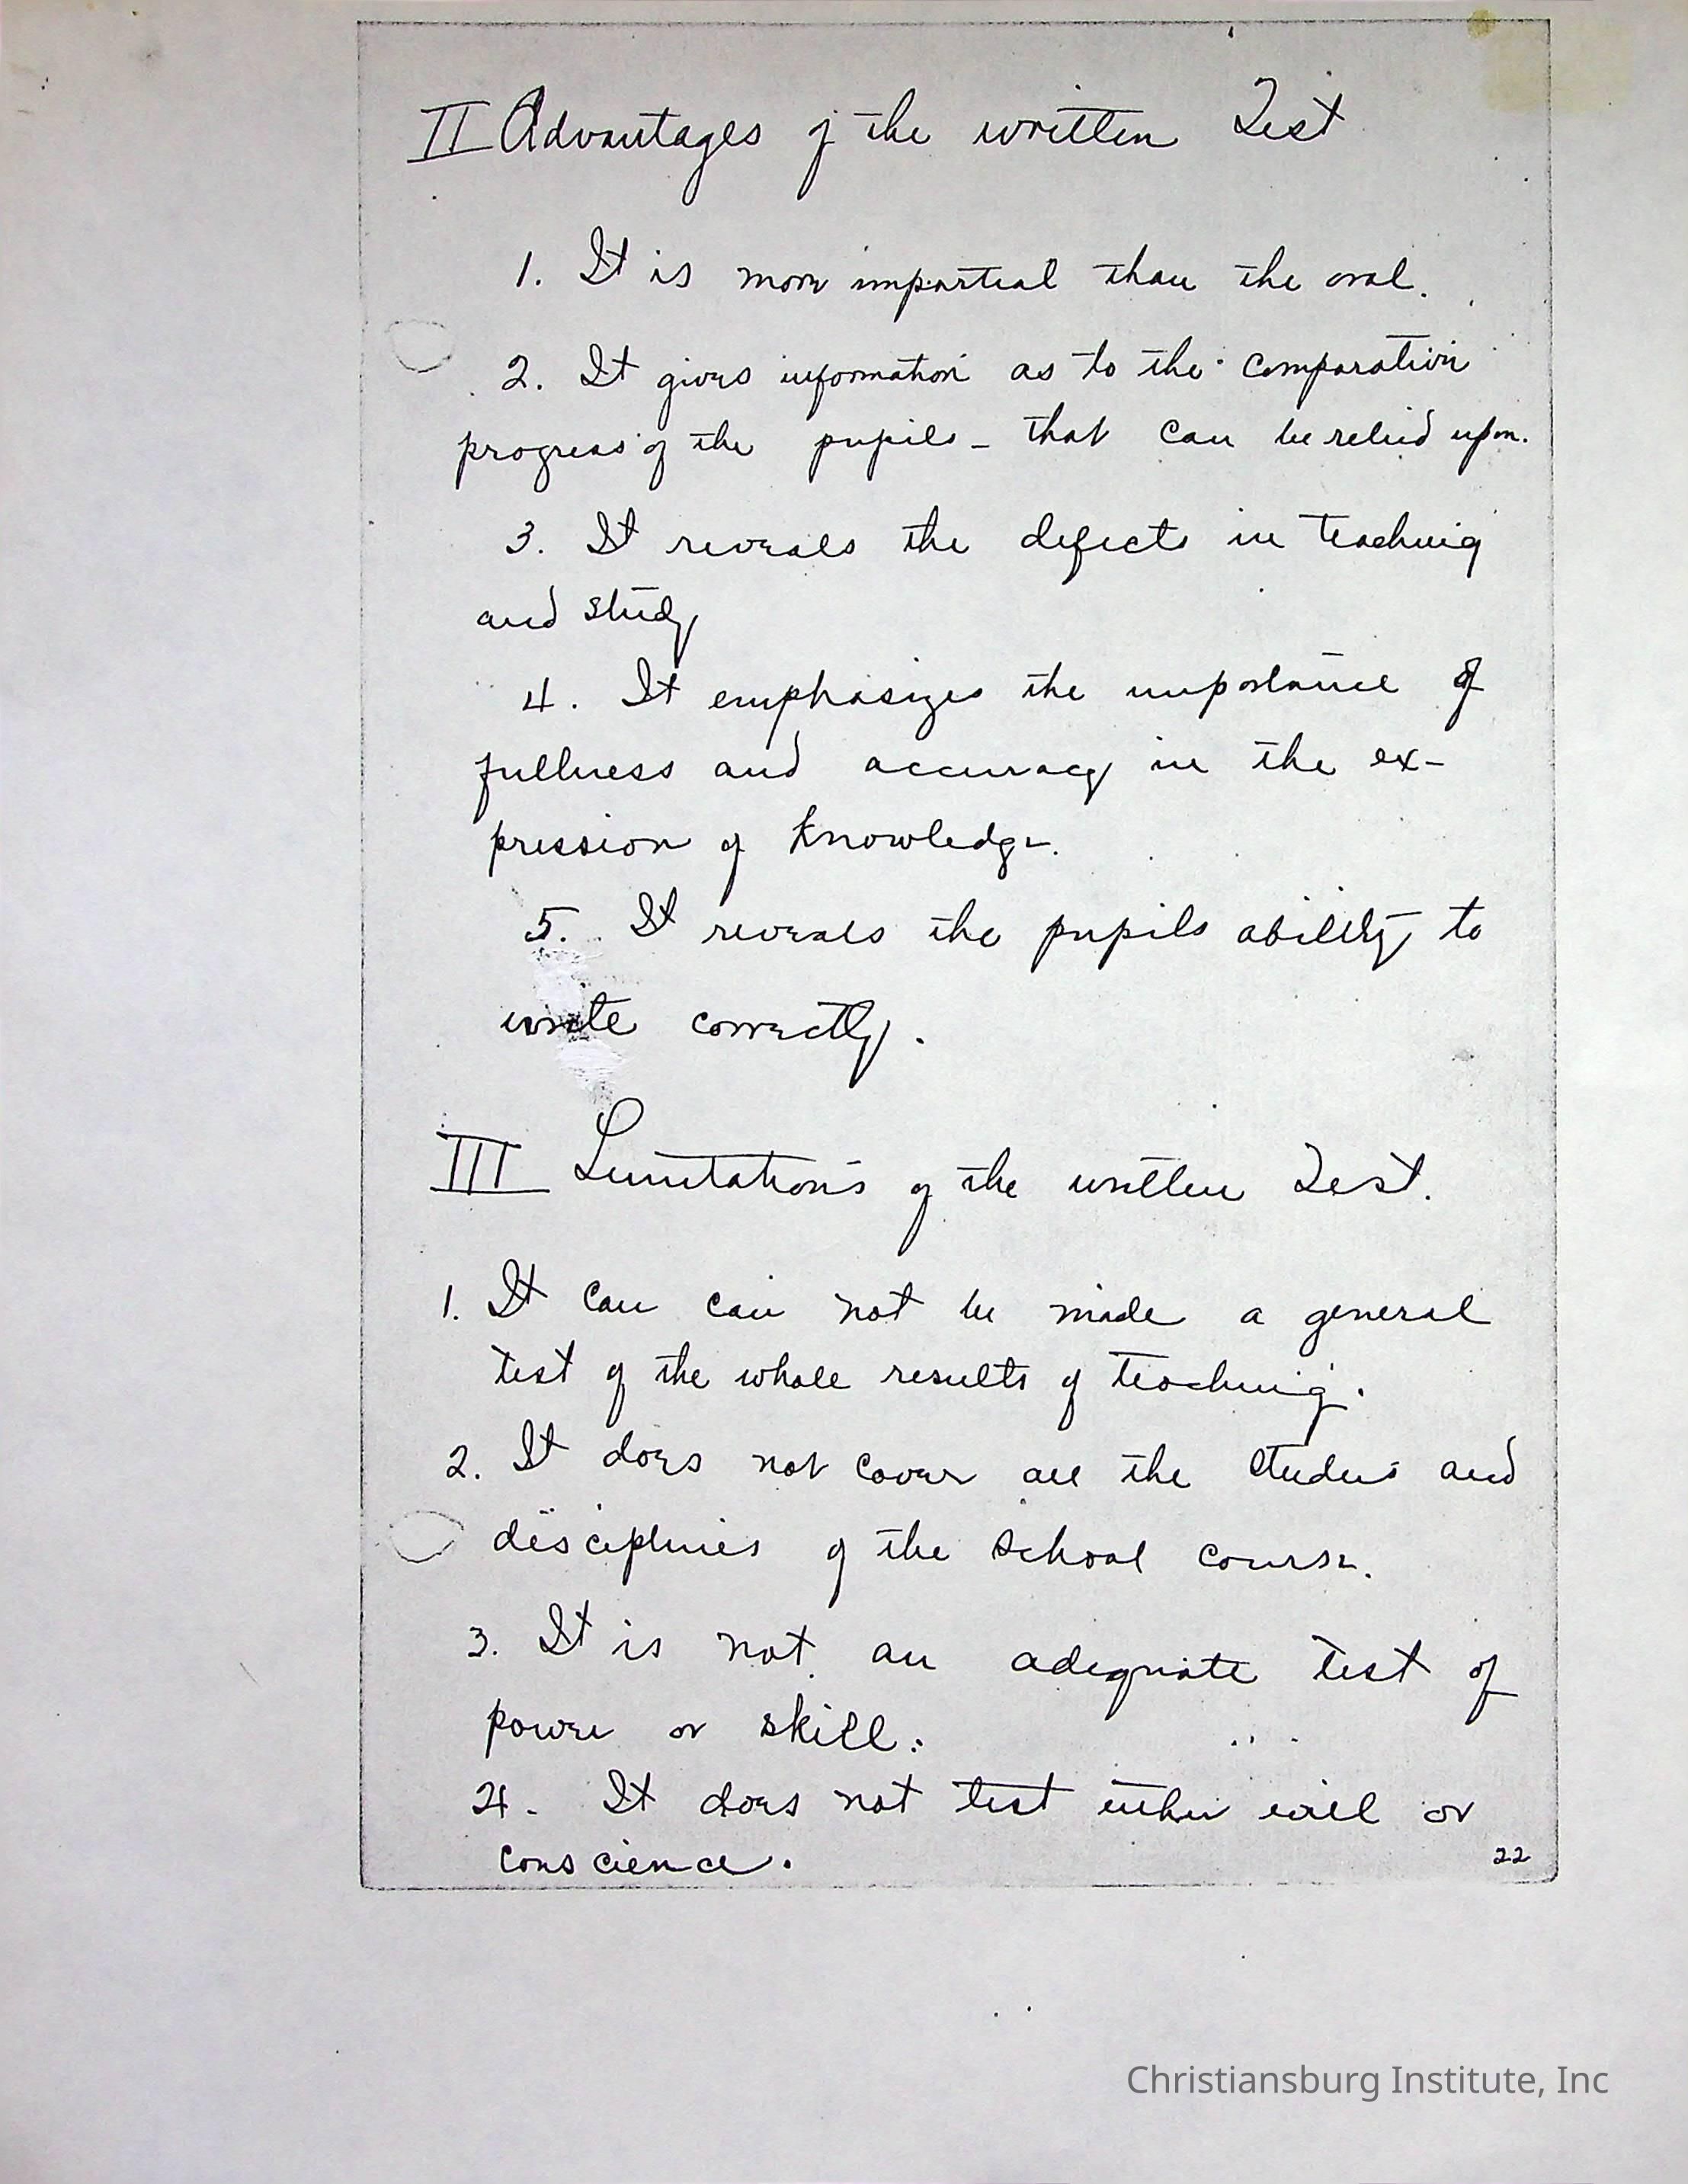 II Advantages of the written Test
1. It is more impartial than the oral.
2. It gives information as to the comparative
progress of the pupils - that can be relied upon.
3. It reveals the defects in teaching
and study
4. It emphasizes the importance of
fullness and accuracy in the ex-
pression of knowledge.
5. It reveals the pupils ability to
write correctly.
III Limitations of the written Test.
1. It can can not be made a general
test of the whole results of teaching.
2. It does not cover all the studies and
disciplines of the school course.
3. It is not an adequate test of
power or skill.
4. It does not test either will or
conscience.
22
Christiansburg Institute, Inc